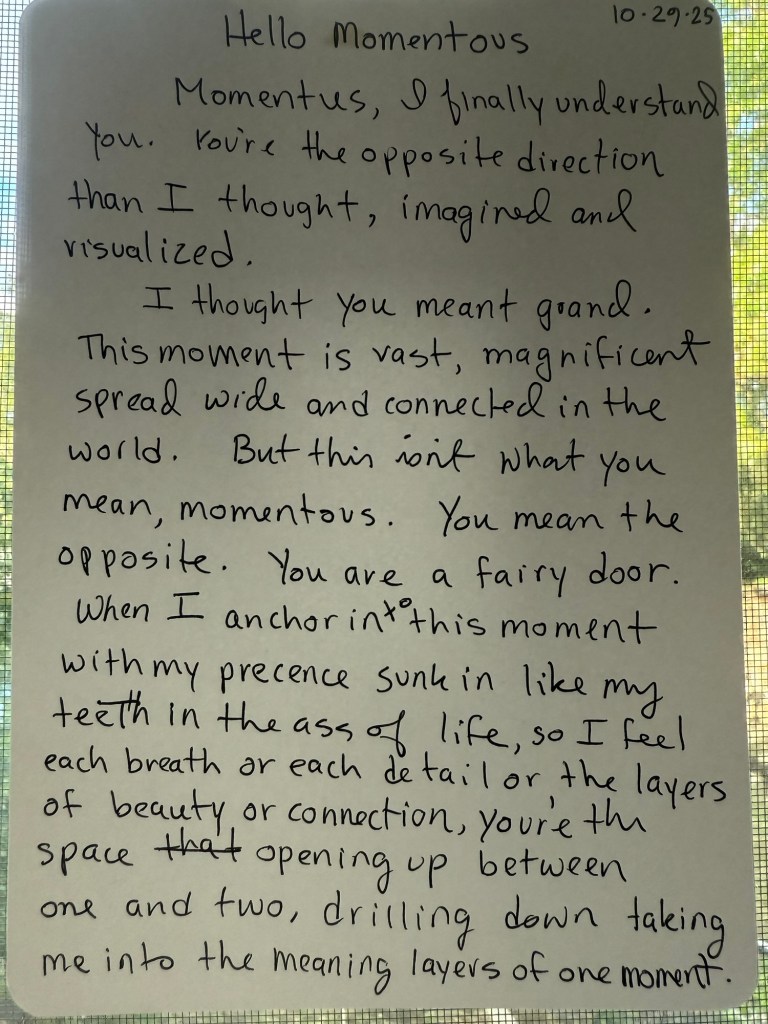 10·29·25
Hello Momentous
Momentus, I finally understand
you. You're the opposite direction
than I thought, imagined and
visualized.
I thought you meant grand.
This moment is vast, magnificent
spread wide and connected in the
world. But this isn't what you
mean, momentous. You mean the
opposite. You are a fairy door.
When I anchor into this moment
with my precence sunk in like my
teeth in the ass of life, so I feel
each breath or each detail or, the layers
of beauty or connection, you're the
space that opening up between
one and two, drilling down taking
me into the meaning layers of one moment.